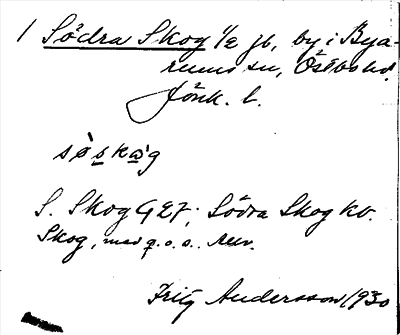 1 Södra Skog 1/2 jb, by i Bya-
rums sn, Östbo hd.
Jönk. l.
S. Skog GEJ; Södra Skog Kv.
Skog, med q.o.s.. Allv.
Fritz Andersson 1930